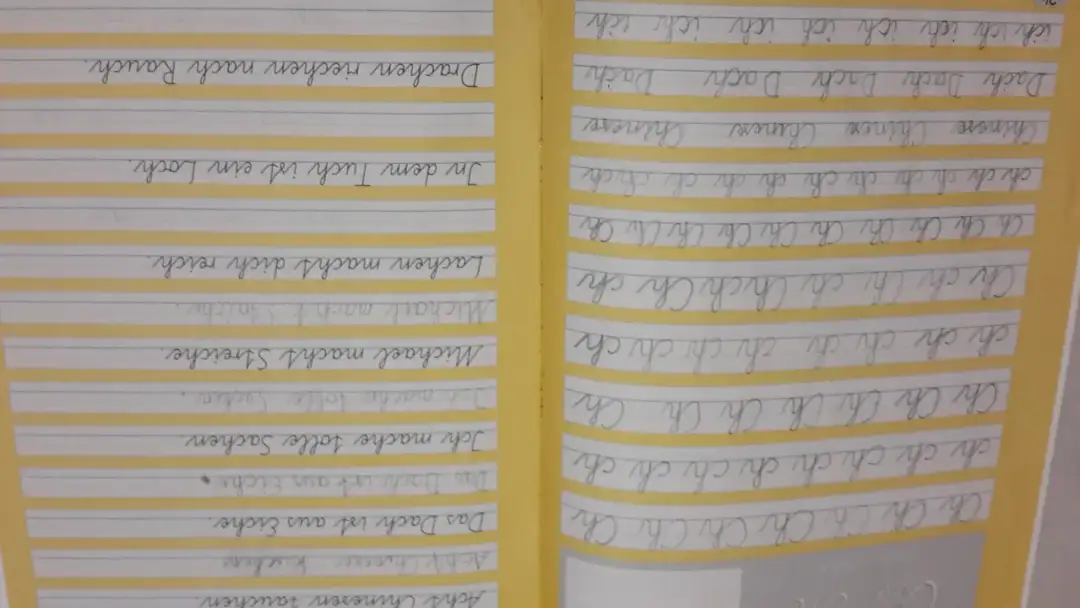 Ch Ch Ch Ch Ch Ch Ch Ch
ch ch ch ch ch ch ch ch ch
Ch Ch Ch Ch Ch Ch Ch Ch
ch ch ch ch ch ch ch ch ch
Ch ch Ch ch Ch ch Ch ch
Ch Ch Ch Ch Ch Ch Ch Ch Ch Ch
ch ch ch ch ch ch ch ch ch ch
Chinese Chinese Chinese Chinese Chinese
Dach Dach Dach Dach Dach Dach
ich ich ich ich ich ich ich ich
Acht Chinesen tauchen.
Acht
Das Dach ist aus Eiche.
Das Dach ist aus Eiche.
Ich mache tolle Sachen.
Ich mache tolle Sachen.
Michael macht Streiche.
Michael macht Streiche.
Lachen macht dich reich.
In dem Tuch ist ein Loch.
Drachen riechen nach Rauch.